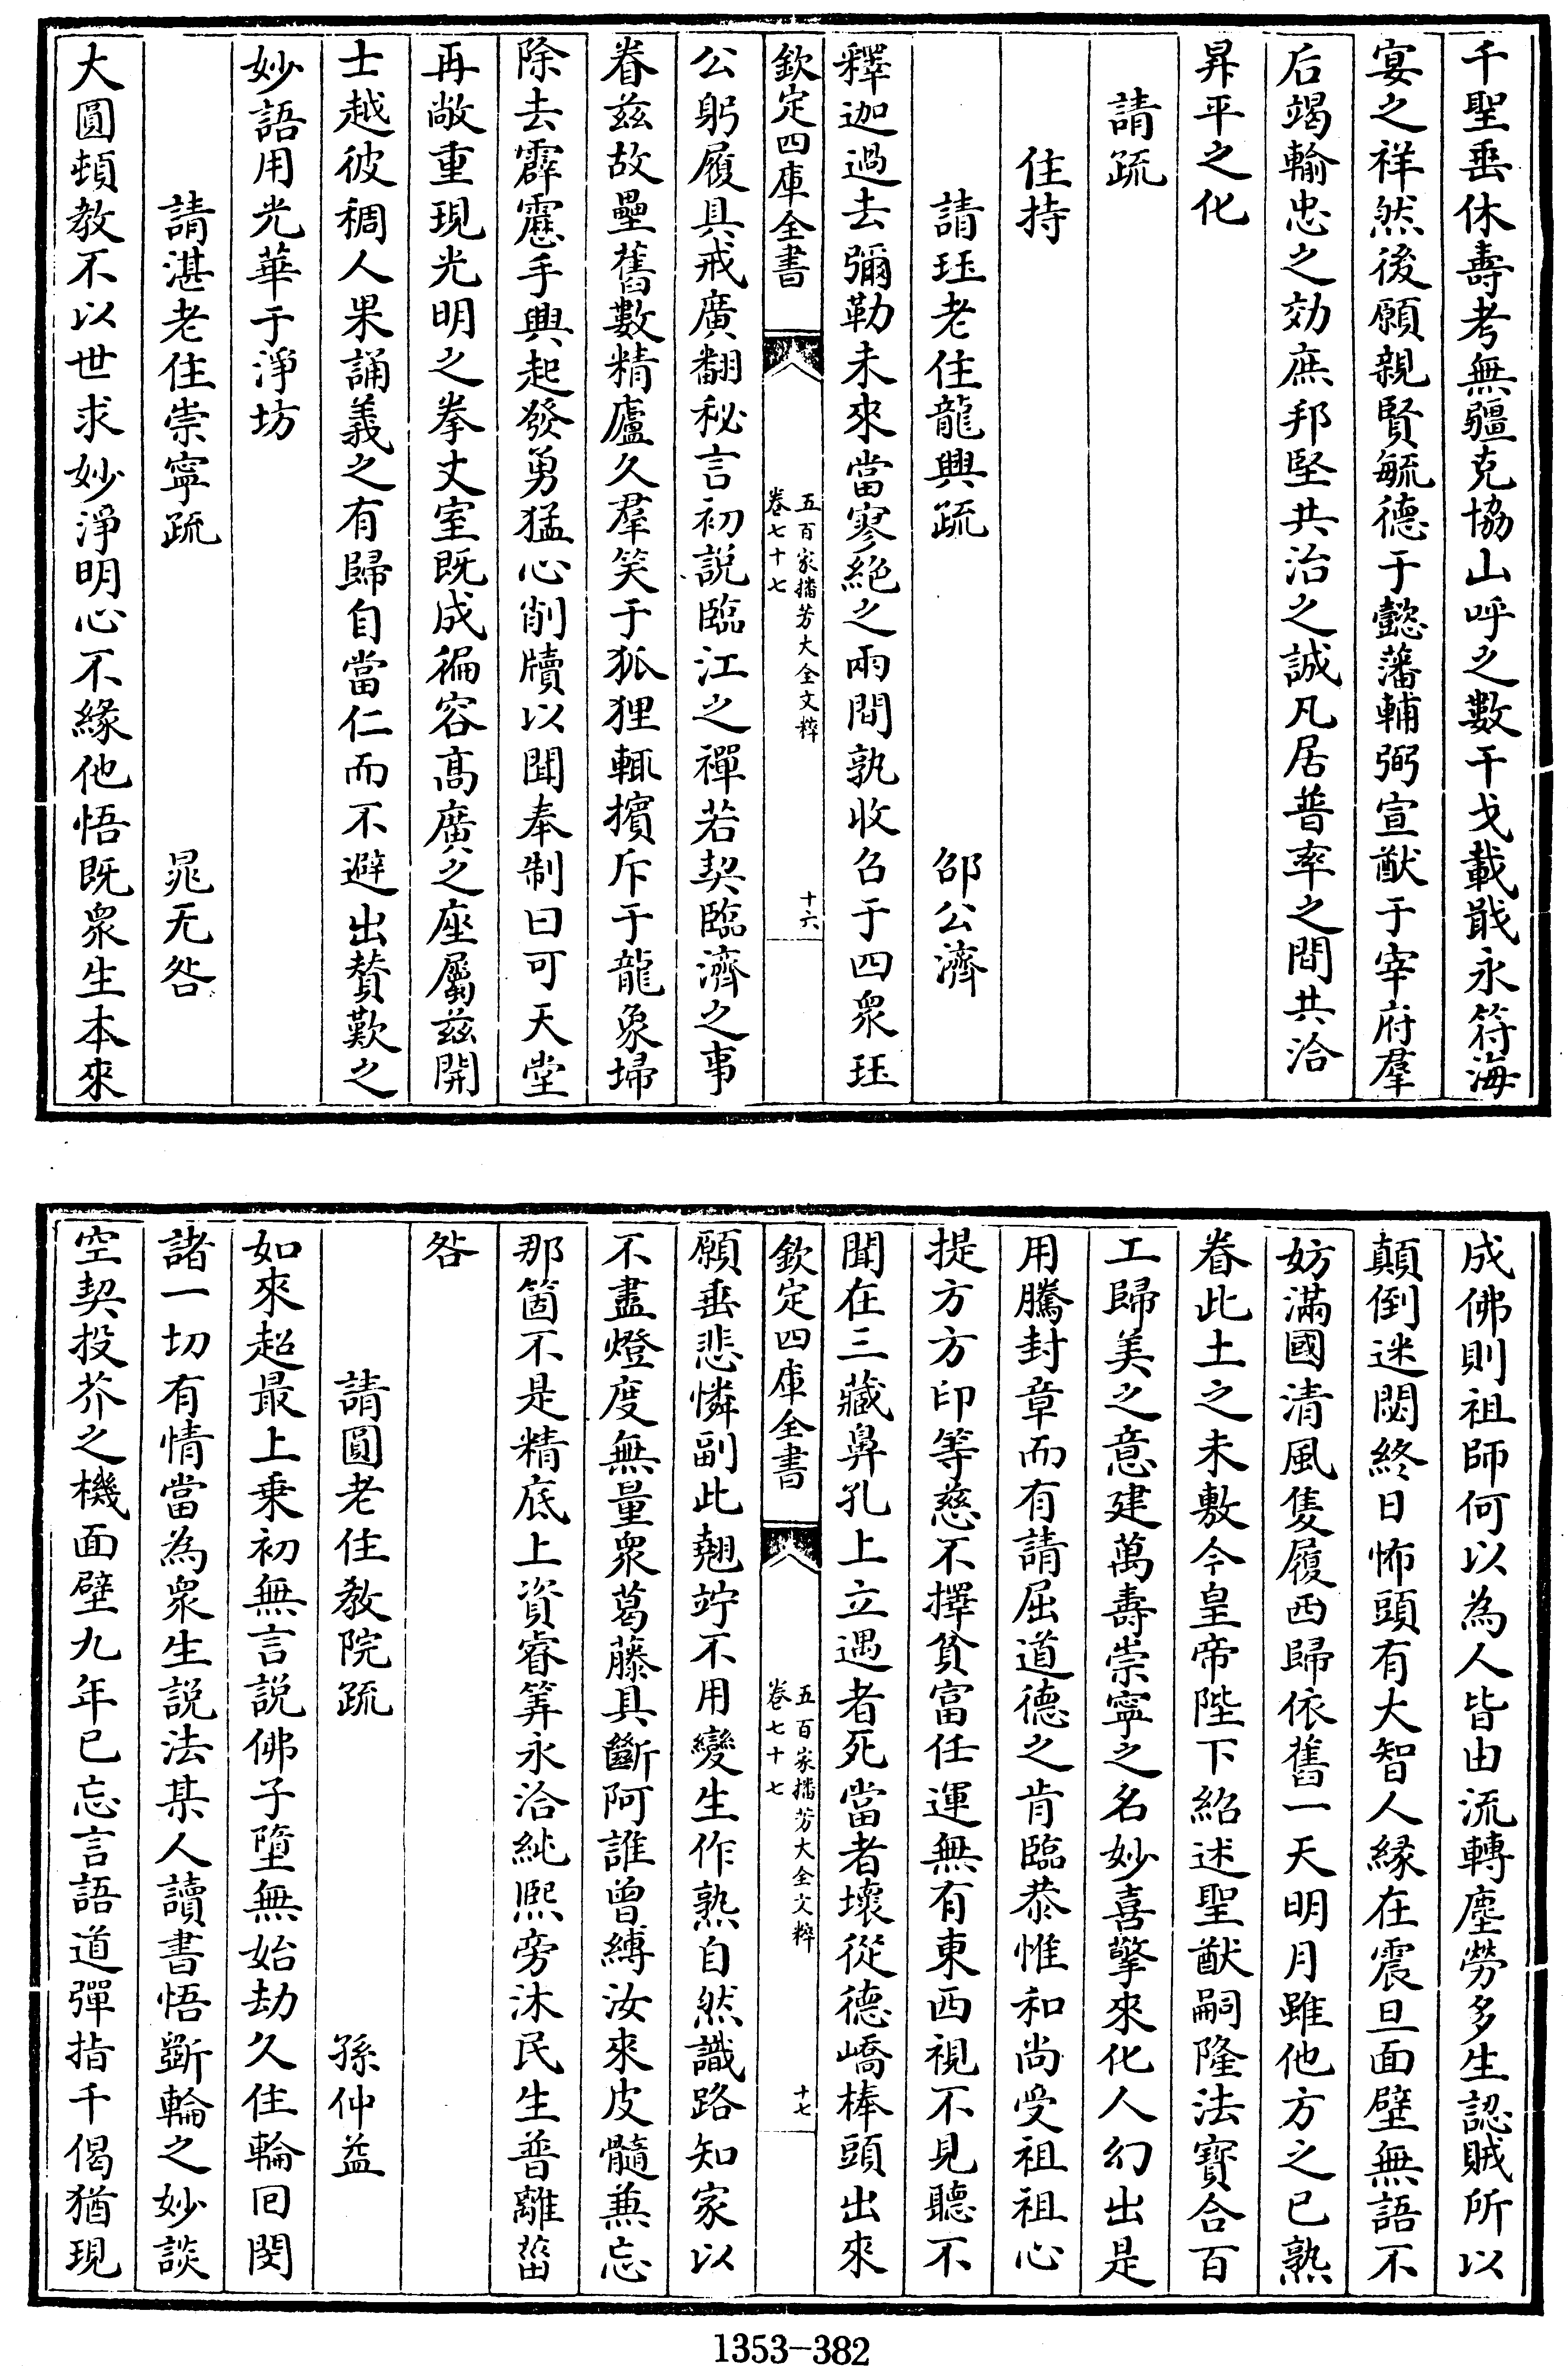 千聖垂休壽考無疆克協山呼之數干戈載戢永符海
宴之祥然後願親賢毓德于懿藩輔弼宣猷于宰府羣
后竭輸忠之効庶邦堅共治之誠凡居普率之間共洽
昇平之化
請疏
住持
請珏老住龍興疏　邵公濟
釋迦過去彌勒未來當寥絶之兩間孰收召于四衆珏
欽定四庫全書　五百家播芳大全文粹　卷七十七　十六
公躬履具戒廣翻秘言初説臨江之禪若契臨濟之事
眷兹故壘舊數精廬久羣笑于狐狸輒擯斥于龍象埽
除去霹靂手興起發勇猛心削牘以聞奉制曰可天堂
再敞重現光明之拳丈室既成徧容高廣之座屬兹開
士越彼稠人果誦義之有歸自當仁而不避出賛歎之
妙語用光華于淨坊
請湛老住崇寧疏　晁无咎
大圓頓教不以世求妙淨明心不緣他悟既衆生本來
成佛則祖師何以為人皆由流轉塵勞多生認賊所以
顛倒迷悶終日怖頭有大智人緣在震旦面壁無語不
妨滿國清風隻履西歸依舊一天明月雖他方之已熟
眷此土之未敷今皇帝陛下紹述聖猷嗣隆法寶合百
工歸美之意建萬壽崇寧之名妙喜擎來化人幻出是
用騰封章而有請屈道德之肯臨恭惟和尚受祖祖心
提方方印等慈不擇貧富任運無有東西視不見聽不
聞在三藏鼻孔上立遇者死當者壞從德嶠棒頭出來
欽定四庫全書　五百家播芳大全文粹　卷七十七　十七
願垂悲憐副此翹竚不用變生作熟自然識路知家以
不盡燈度無量衆葛藤具斷阿誰曾縛汝來皮髓兼忘
那箇不是精底上資睿筭永洽純熙旁沐民生普離菑
咎
請圓老住教院疏　孫仲益
如來超最上乗初無言説佛子墮無始劫久住輪囘閔
諸一切有情當為衆生説法某人讀書悟斲輪之妙談
空契投芥之機面壁九年已忘言語道彈指千偈猶現
1353-382